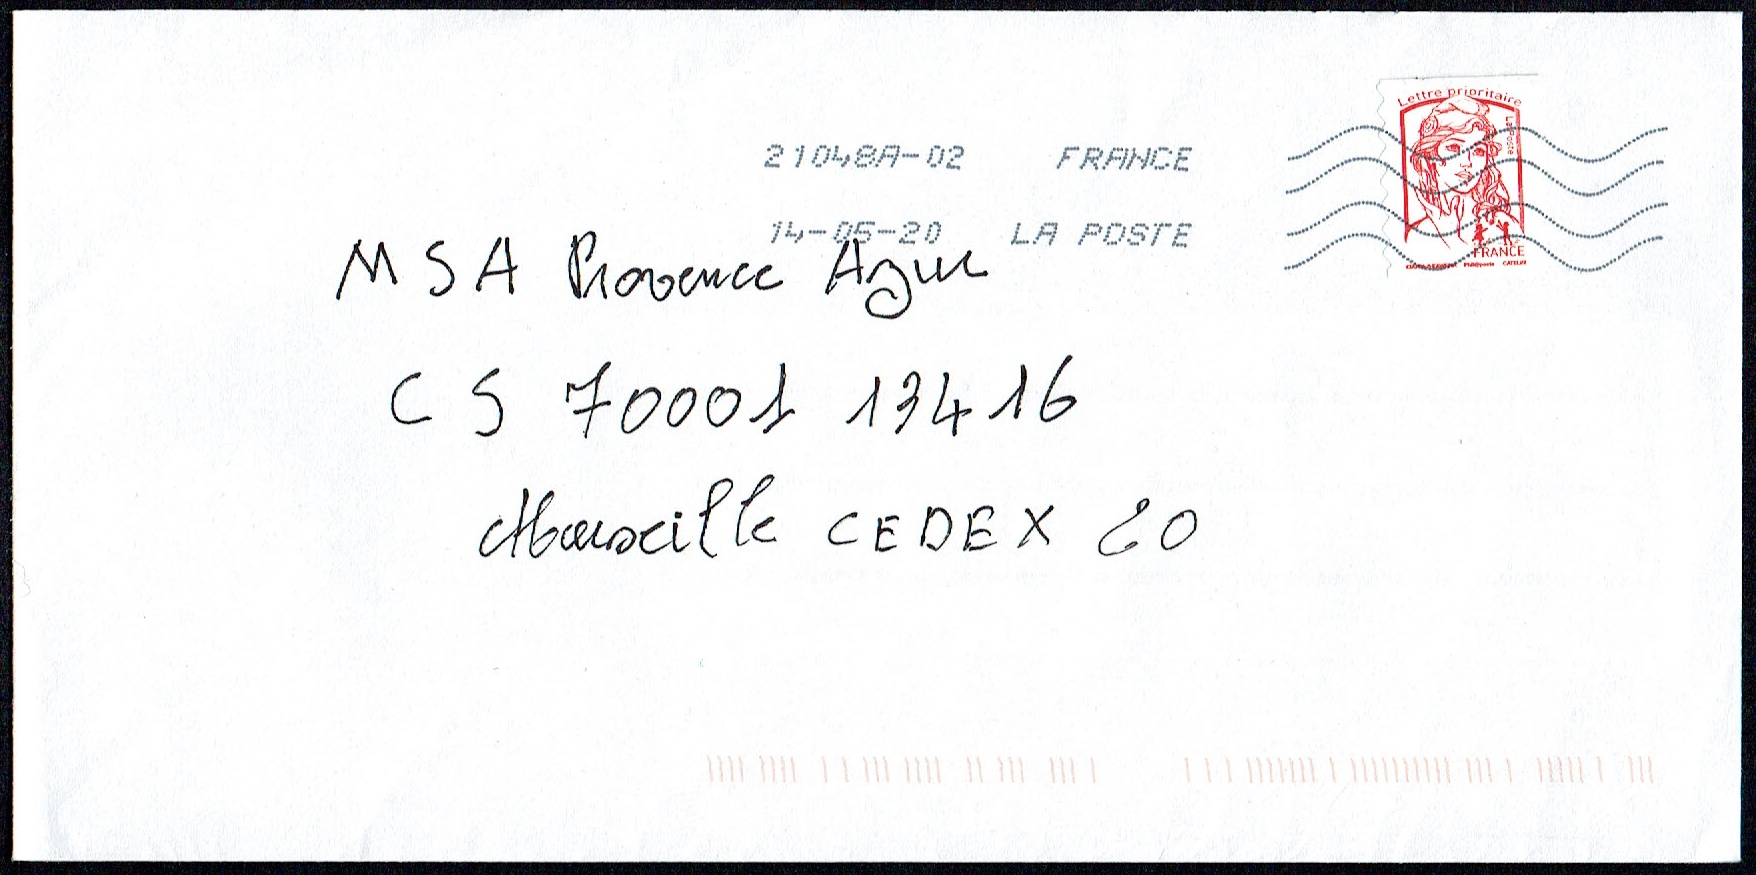 Lettre prioritaire
La Poste
21048A-02 FRANCE
14-05-20 LA POSTE
FRANCE
MSA Provence Azur
CS 70001 13416
Marseille CEDEX 20